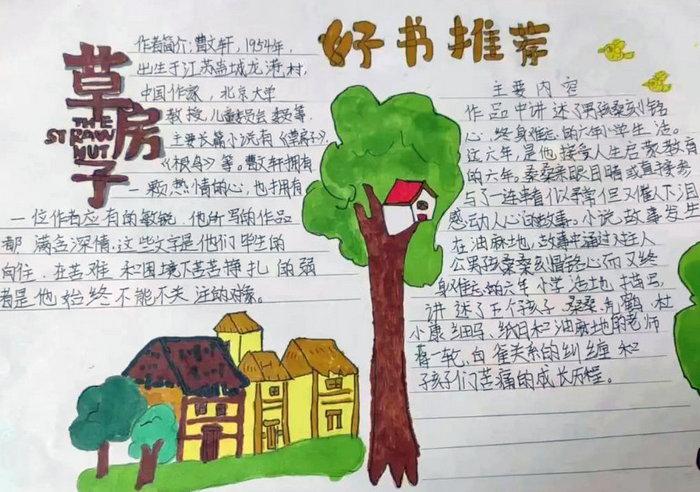 好书推荐
草房子
THE
STRAW
HUT
作者简介:曹文轩,1954年,
出生于江苏盐城龙港村,
中国作家,北京大学
教授,儿童委员会委员等,
主要长篇小说有《草房子》
《根鸟》等。曹文轩拥有
一颗热情的心,也拥有
一位作者应有的敏锐,他所写的作品
都满含深情,这些文字是他们毕生的
向往,在苦难和困境下苦苦挣扎的弱
者是他始终不能不关注的对象。
主要内容
作品中讲述了男孩桑桑刻铭
心,终身难忘的六年小学生活。
这六年,是他接受人生启蒙教育
的六年。桑桑亲眼目睹或直接参
与了一连串看似寻常但又催人下泪
感动人心的故事。小说故事发生
在油麻地,故事中通过对主人
公男孩桑桑刻骨铭心而又终
身难忘的六年小学生活地描写,
讲述了五个孩子,桑桑、秃鹤、杜
小康、细马、纸月和油麻地的老师
蒋一轮、白雀关系的纠缠和
孩子们苦痛的成长历程。